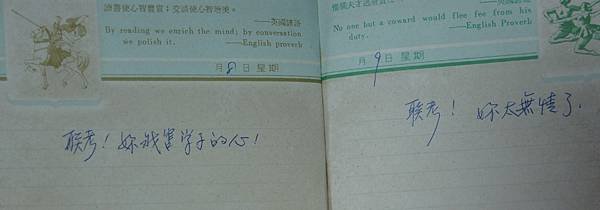 讀書使心智豐富;交談使心智增強。
——英國諺語
By reading we enrich the mind; by conversation
we polish it.
——English proverb
月8日星期
联考!妳戕害学子的心!
No one but a coward would flee fee from his
duty.
——English Proverb
月9日星期
联考! 妳太無情了.